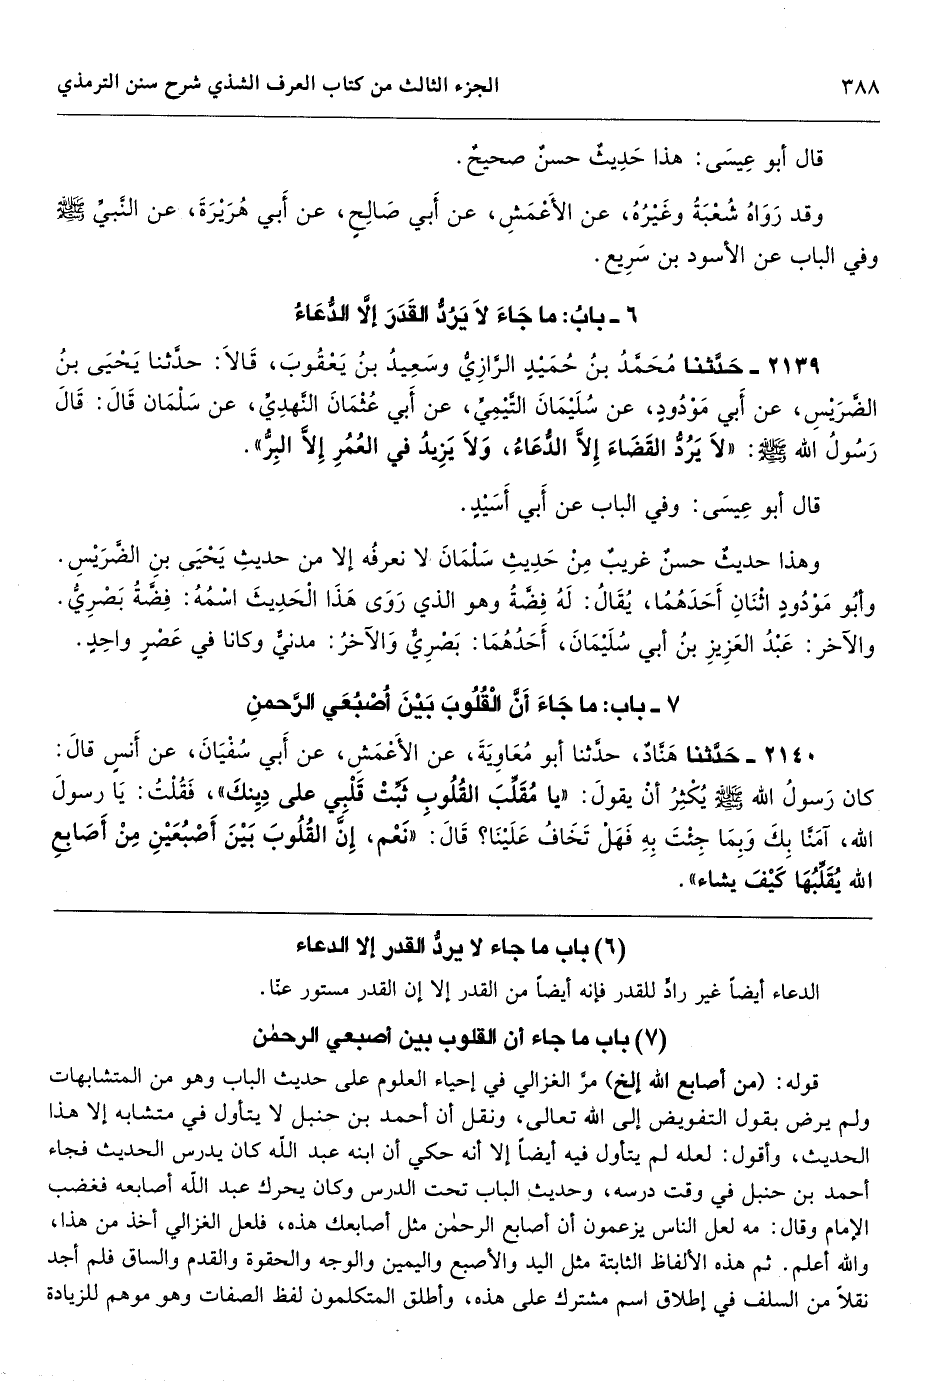 ٣٨٨ الجزء الثالث من كتاب العرف الشذي شرح سنن الترمذي
قال أبو عِيسَى: هذا حَدِيثٌ حسنٌ صحيحٌ.
وقد رَوَاهُ شُعْبَةُ وغَيْرُهُ، عن الأعْمَشِ، عن أَبي صَالِحٍ، عن أَبي هُرَيْرَةَ، عن النَّبيِّ ﷺ
وفي الباب عن الأسود بن سَرِيع.
٦ ـ بابُ: ما جَاءَ لاَ يَرُدُّ القَدَرَ إلَّا الدُّعَاءُ
٢١٣٩ ـ حَدَّثنا مُحَمَّدُ بنُ حُمَيْدٍ الرَّازِيُّ وسَعِيدُ بنُ يَعْقُوبَ، قَالاَ: حدَّثنا يَحْيَى بنُ
الضَّرَيْسِ، عن أبي مَوْدُودٍ، عن سُلَيْمَانَ التَّيْمِيِّ، عن أبي عُثْمَانَ النَّهدِيِّ، عن سَلْمَان قَالَ: قَالَ
رَسُولُ الله ﷺ: «لاَ يَرُدُّ القَضَاءَ إِلاَّ الدُّعَاءُ، وَلاَ يَزِيدُ في العُمُرِ إِلاَّ البِرُّ».
قال أبو عِيسَى: وفي الباب عن أَبي أَسَيْدٍ.
وهذا حديثٌ حسنٌ غريبٌ مِنْ حَدِيثِ سَلْمَانَ لا نعرفُه إلا من حديثِ يَحْيَى بنِ الضَّرَيْسِ.
وأبُو مَوْدُودٍ اثْنَانِ أَحَدَهُمَا، يُقَالُ: لَهُ فِضَّةُ وهو الذي رَوَى هَذَا الْحَدِيثَ اسْمُهُ: فِضَّةُ بَصْرِيُّ.
والآخر: عَبْدُ العَزِيزِ بنُ أبي سُلَيْمَانَ، أَحَدُهُمَا: بَصْرِيٌّ وَالآخرُ: مدنيٌّ وكانا في عَصْرٍ واحِدٍ.
٧ ـ باب: ما جَاءَ أنَّ الْقُلُوبَ بَيْنَ أُصْبُعَي الرَّحمنِ
٢١٤٠ ـ حَدَّثنا هَنَّادٌ، حدَّثنا أبو مُعَاوِيَةَ، عن الأَعْمَشِ، عن أَبي سُفْيَانَ، عن أَنسٍ قالَ:
كان رَسولُ الله ﷺ يُكْثِرُ أنْ يقولَ: «يا مُقَلِّبَ القُلُوبِ ثَبِّتْ قَلْبِي على دِينِكَ»، فَقُلْتُ: يَا رسولَ
الله، آمَنَّا بِكَ وَبِمَا جِئْتَ بِهِ فَهَلْ تَخَافُ عَلَيْنَا؟ قَالَ: «نَعْم، إِنَّ القُلُوبَ بَيْنَ أَصْبُعَيْنِ مِنْ أَصَابِعِ
الله يُقَلِّبُهَا كَيْفَ يشاء».
(٦) باب ما جاء لا يردُّ القدر إلا الدعاء
الدعاء أيضاً غير رادٍّ للقدر فإنه أيضاً من القدر إلا إن القدر مستور عنّا.
(٧) باب ما جاء أن القلوب بين أصبعي الرحمٰن
قوله: (من أصابع الله إلخ) مرَّ الغزالي في إحياء العلوم على حديث الباب وهو من المتشابهات
ولم يرض بقول التفويض إلى الله تعالى، ونقل أن أحمد بن حنبل لا يتأول في متشابه إلا هذا
الحديث، وأقول: لعله لم يتأول فيه أيضاً إلا أنه حكي أن ابنه عبد اللّه كان يدرس الحديث فجاء
أحمد بن حنبل في وقت درسه، وحديث الباب تحت الدرس وكان يحرك عبد اللّه أصابعه فغضب
الإمام وقال: مه لعل الناس يزعمون أن أصابع الرحمٰن مثل أصابعك هذه، فلعل الغزالي أخذ من هذا،
والله أعلم. ثم هذه الألفاظ الثابتة مثل اليد والأصبع واليمين والوجه والحقوة والقدم والساق فلم أجد
نقلاً من السلف في إطلاق اسم مشترك على هذه، وأطلق المتكلمون لفظ الصفات وهو موهم للزيادة